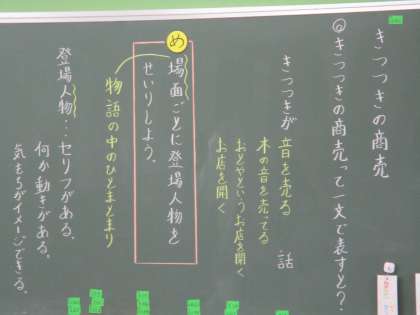 きつつきの商売
◎きつつきの商売って一文で表すと?
きつつきが
音を売る
木の音を売ってる
おとやというお店を開く
お店を開く
話
め
場面ごとに登場人物を
せいりしよう。
物語の中のひとまとまり
登場人物…セリフがある。
何か動きがある。
気もちがイメージできる。